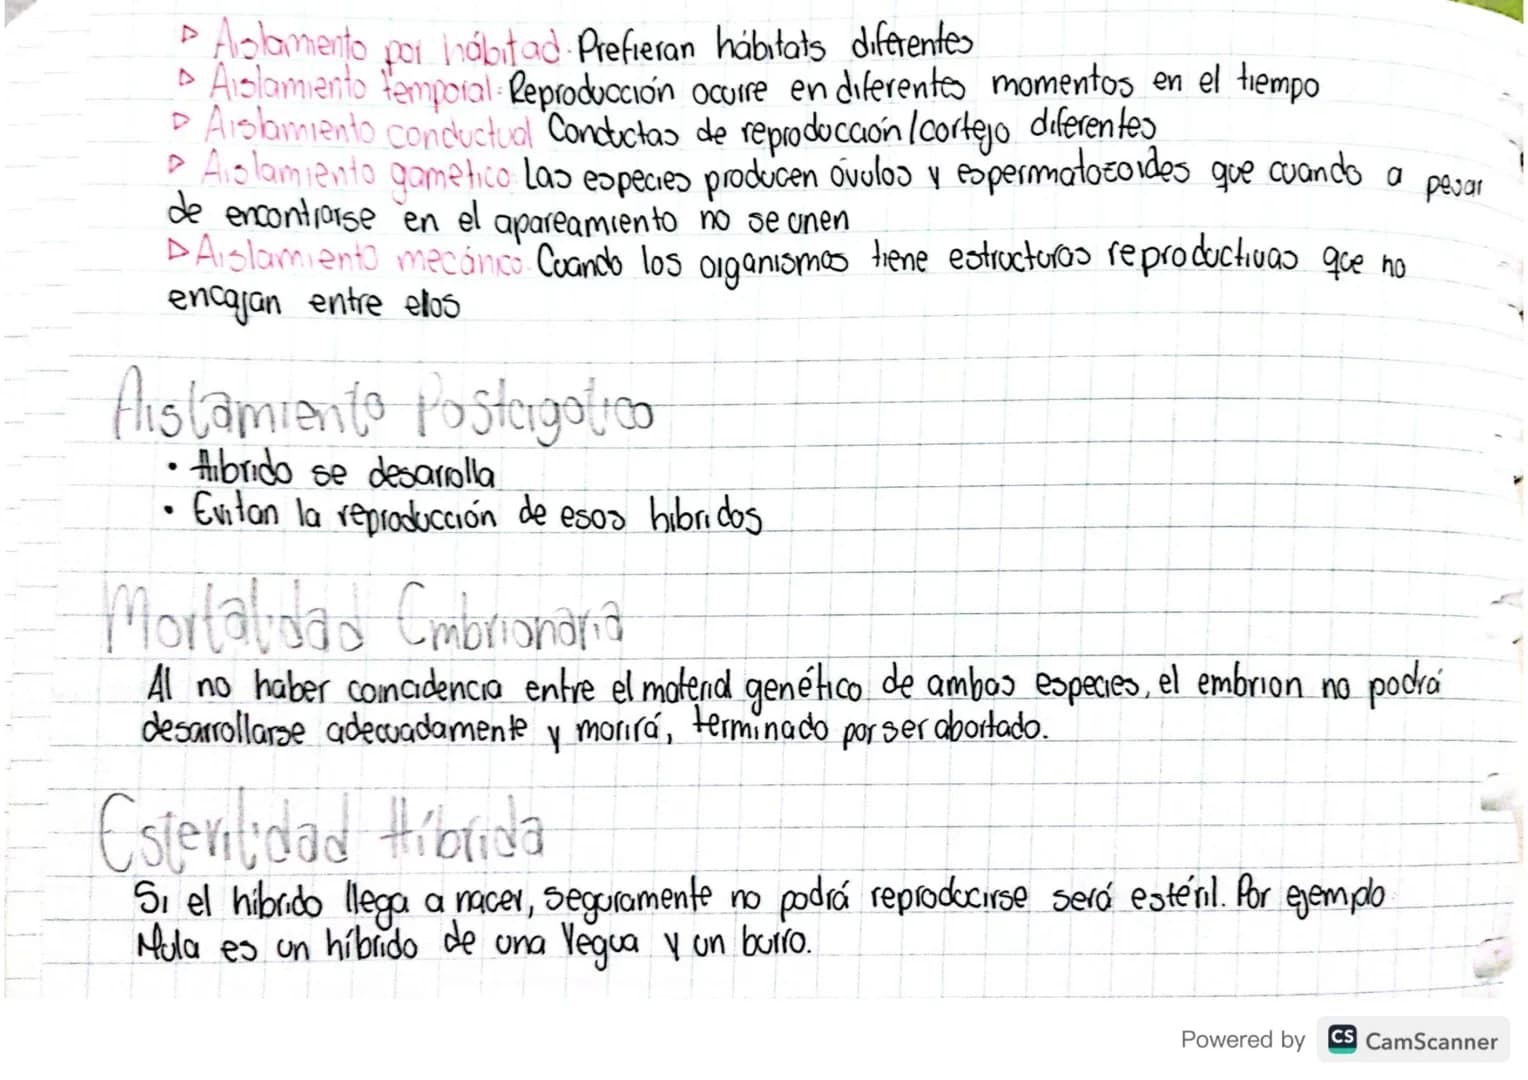 ▷ Aislamento por hábitad. Prefieran hábitats diferentes
▷ Aislamiento temporal: Reproducción ocurre en diferentes momentos en el tiempo
▷ Aislamiento conductual Conductas de reproducción/cortejo diferentes
▷ Aislamiento gamético: Las especies producen óvulos y espermatozoides que cuando a pesar
de encontrarse en el apareamiento no se unen
▷ Aislamiento mecánico. Cuando los organismos tiene estructuras reproductivas que no
encajan entre elos
Aislamiento Postcigotico
• Hibrido se desarrolla
• Evitan la reproducción de esos hibridos
Mortalidad Embrionaria
Al no haber coincidencia entre el material genético de ambas especies, el embrion no podrá
desarrollarse adecuadamente y morirá, terminado por ser abortado.
Esterilidad Híbrida
Si el híbrido llega a nacer, seguramente no podrá reproducirse será estéril. Por ejemplo
Mula es un híbrido de una Yegua y un burro.
Powered by CS CamScanner